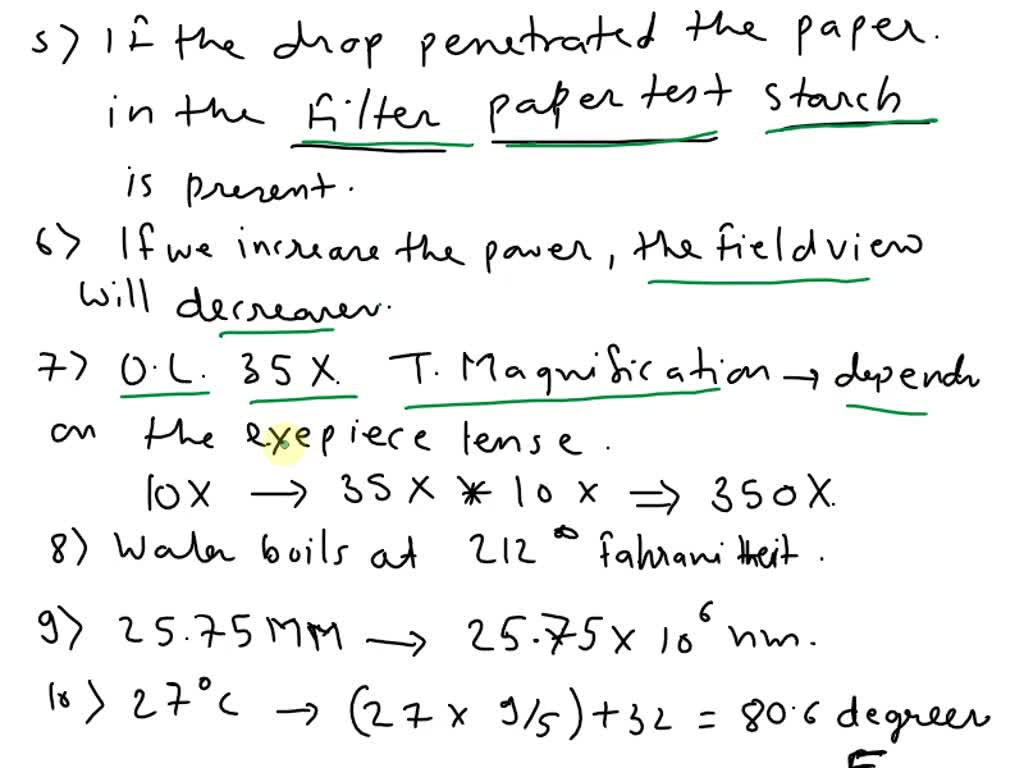 5> If the drop penetrated the paper.
in the filter paper test starch
is present.
6> If we increase the power, the field view
will decreases.
7> O.L. 35X. T. Magnification → depends
on the eyepiece lense.
10X → 35X * 10X ⇒ 350X.
8) Water boils at 212° fahranitheit.
9> 25.75MM → 25.75 x 10⁶ nm.
10> 27°C → (27 x 9/5) + 32 = 80.6 degrees
F